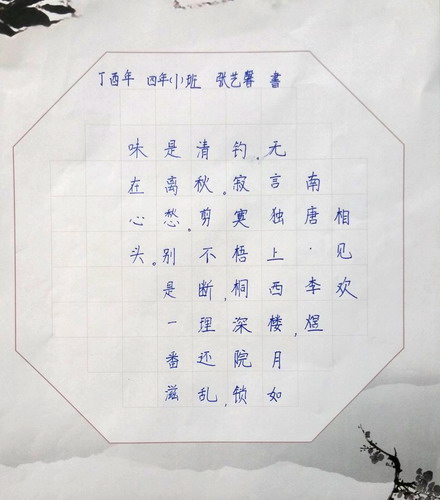 丁酉年 四年(1)班 张艺馨 書
相见欢
南唐·李煜
无言独上西楼,月如
钓。寂寞梧桐深院,锁
清秋。剪不断,理还乱,
是离愁。别是一番滋
味在心头。